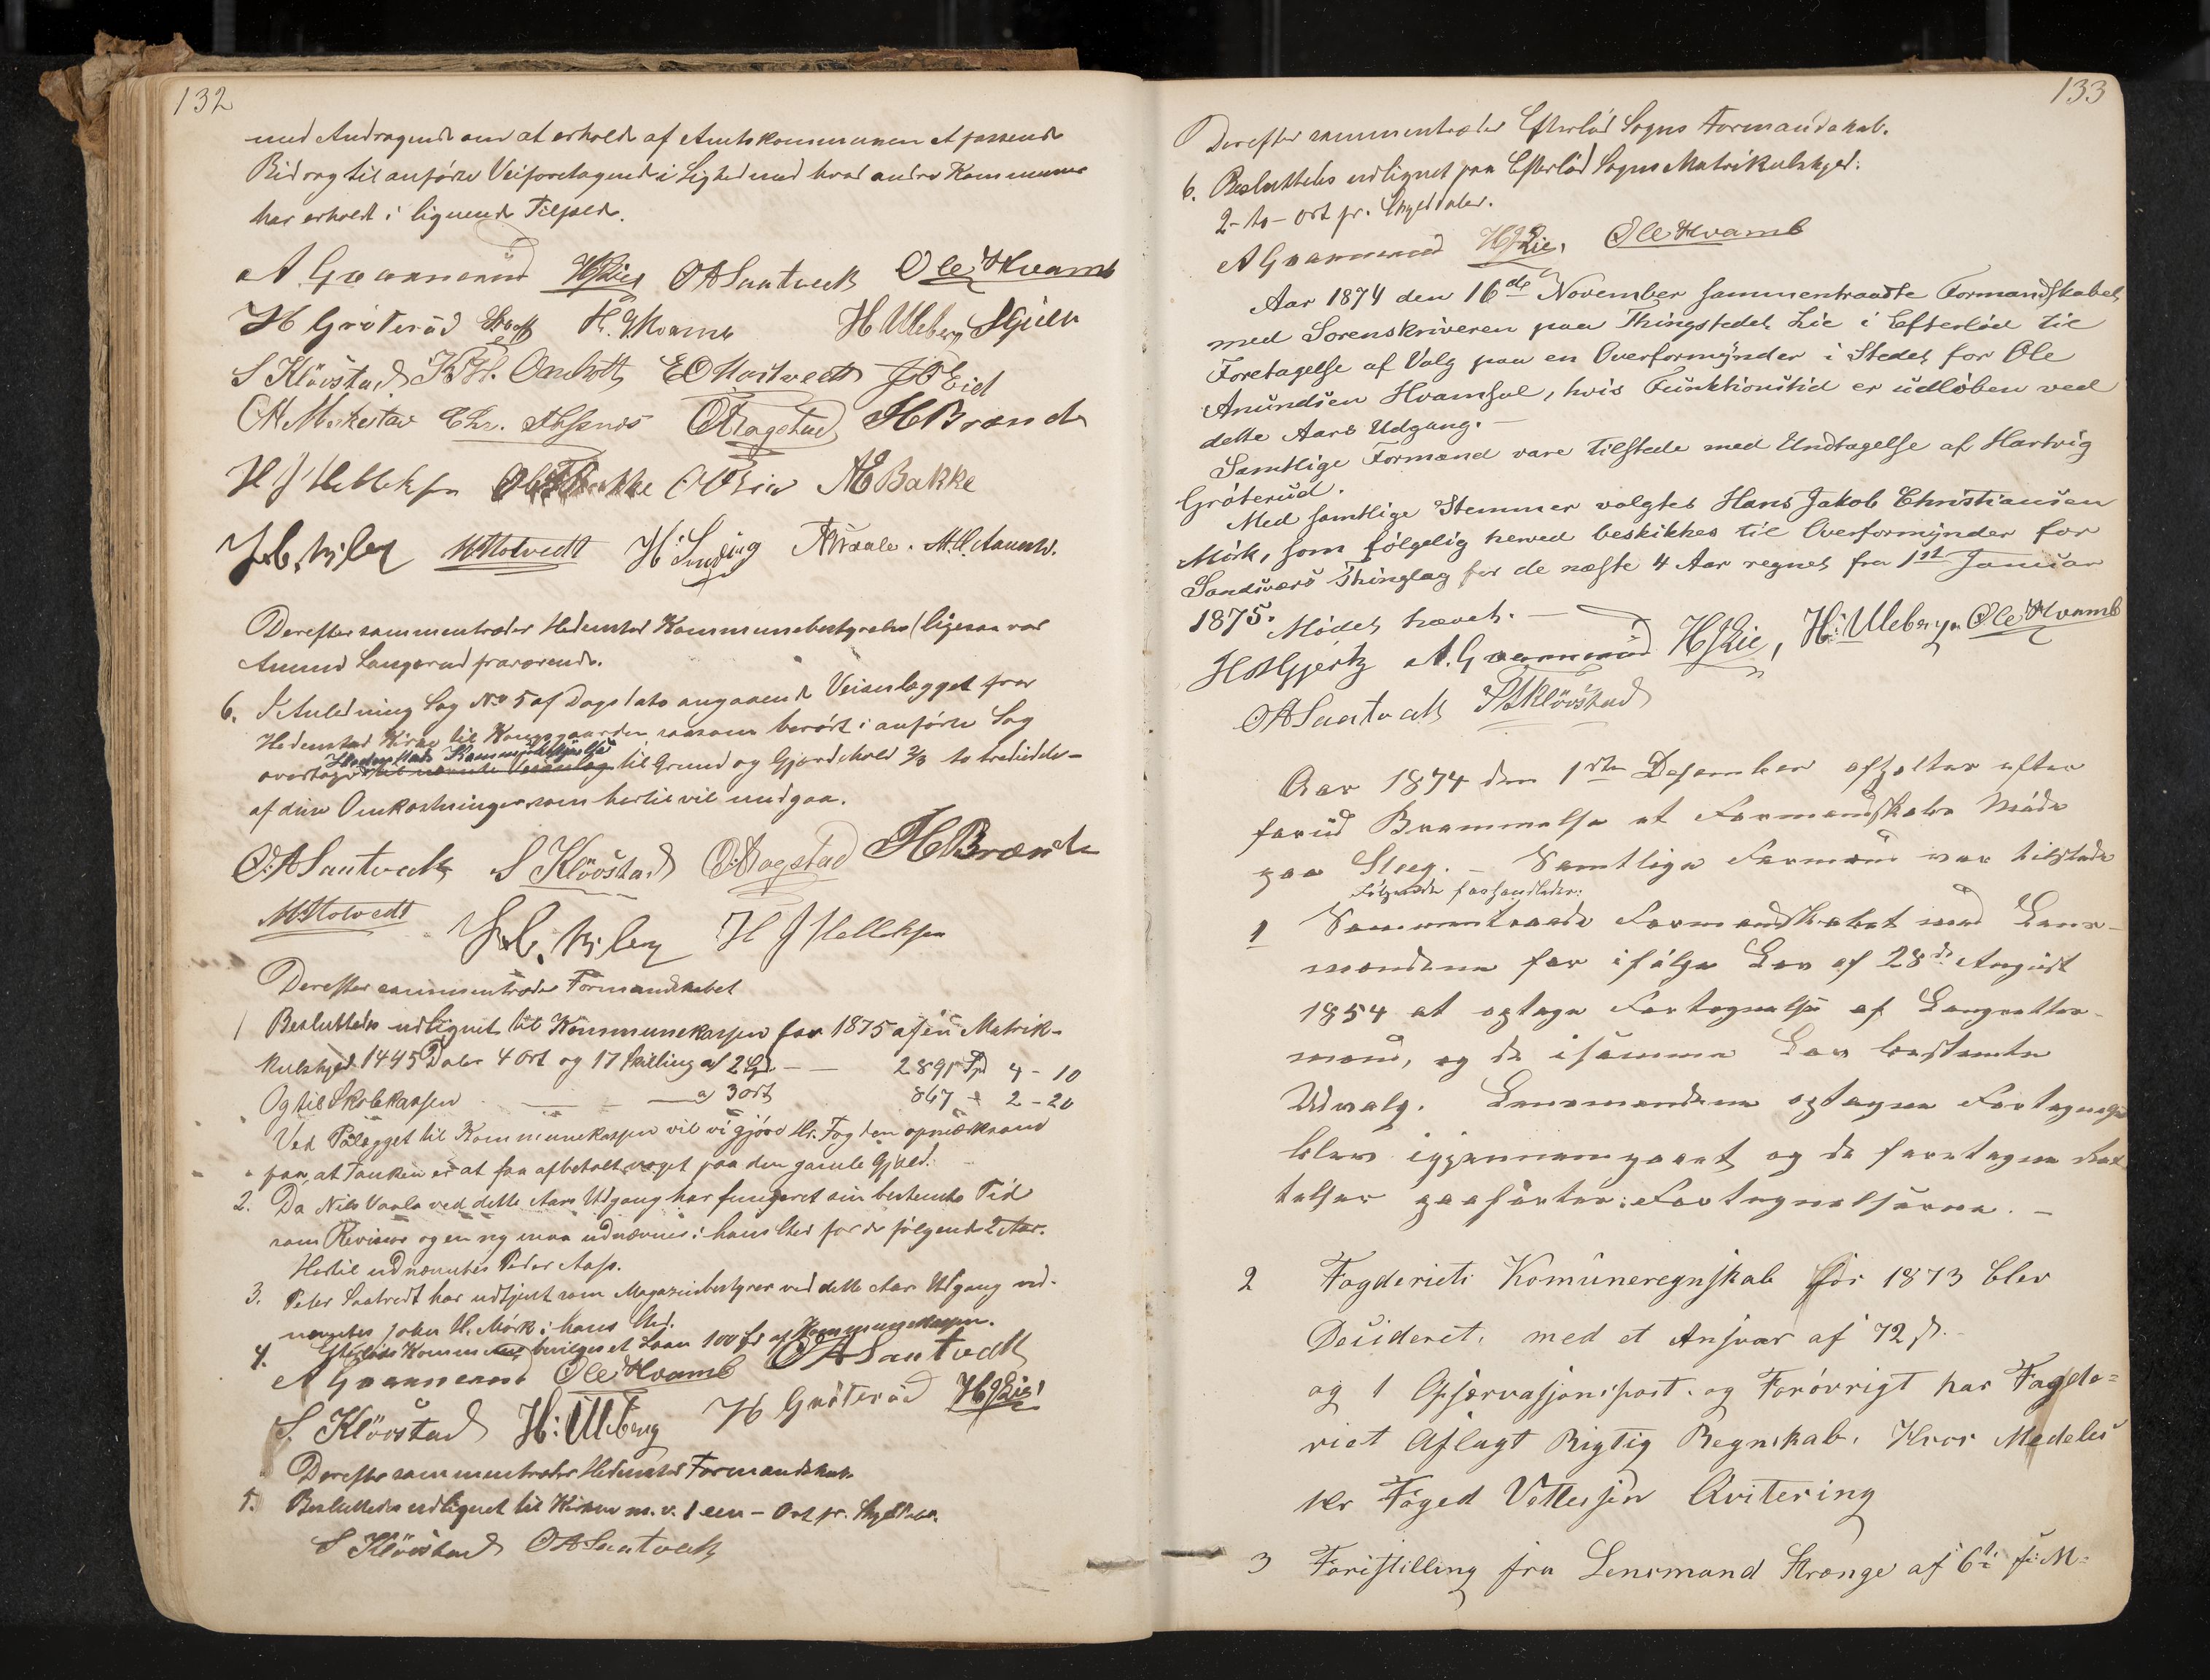 132
med Andragende om at erholde af Amtskommunen et passende
Bidrag til anførte Veiforetagende i Lighed med hvad andre Kommuner
har erholdt i lignende Tilfælde.
A Gvarnerud HJLie OASaatvedt Ole Hvamb
H Gröterüd H Uleberg
S Klövstad EOHostvedt JOEid
Chr. OARagstad HBrænde
H J Helleksen AEBakke
MHotvedt
Derefter sammentræder Hedenstad Kommunebestyrelse (ligesaa var
Amund Langerud fraværende.
6. I Anledning Sag No 5 af Dags dato angaaende Veianlægget fra
Hedenstad Kirke til Kongsgaarden saasom berört i anförte Sag
overtager Hedenstads til Grund og Gjærdehold 2/3 to trediedele
af disse Omkostninger som hertil vil medgaa.
OASaatvedt S Klövstad OARagstad HBrænde
MHotvedt H J Helleksen
Derefter sammentræder Formandskabet
1 Besluttedes udlignet til Kommunekassen for 1875 af en Matrik-
kulskyld 1445 Daler 4 Ort og 17 skilling a 2 Spd — — 2891 Spd 4 - 10
Og til Skolekassen — — a 3 ort 867 - 2 - 20
Ved Pålegget til Kommunekassen vil vi gjöre Hr. Fogden opmærksom
paa, at Tanken er at faa afbetalt noget paa den gamle Gjæld.
2. Da Nils Vaale ved dette Aars Udgang har fungeret sin bestemte Tid
som Revisor og en ny maa udnævnes i hans Sted for de følgende 2 Aar.
Hertil udnævntes Peder Aas.
3. Peter Saatvedt har udtjent som Magazinbestyrer ved dette Aars Udgang ud-
nævntes John H. Mörk i hans Sted.
4. Efteløds Kommune bevilges et Laan 100 Spd af Kommunekassen.
A Gvarnerud Ole Hvamb OASaatvedt
S. Klövstad H: Uleberg H Gröterüd HJLie
Derefter sammentræder Hedenstad Formandskab
5. Besluttedes udlignet til Kirken m. v. 1 een - Ort pr. Skylddaler.
S Klövstad OASaatvedt
133
Derefter sammentræder Efteløds Sogns Formandskab.
6. Besluttedes udlignet paa Efteløds Sogns Matrikulskyld:
2 - to - ort pr. Skylddaler.
A Gvarnerud HJLie, Ole Hvamb
Aar 1874 den 16de November sammentraadte Formandskabet
med Sorenskriveren paa Thingstedet Lie i Efterlöd til
Foretagelse af Valg paa en Overformynder i Stedet for Ole
Anundsen Hvamsal, hvis Funktionstid er udlöben ved
dette Aars Udgang. —
Samtlige Formænd vare tilstede med Undtagelse af Hartvig
Gröterud.
Med samtlige Stemmer valgtes Hans Jakob Christiansen
Mörk, som fölgelig herved beskikkes til Overformynder for
Sandsværs Thinglag for de næste 4 Aar regnet fra 1ste Januar
1875. Mödet hævet. —
A. Gvarnerud HJLie, H: Uleberg Ole Hvamb
OASaatvedt S Klövstad
Aar 1874 den 1ste Desember afholtes efter
forud Brammelse et Formandskabs Möde
paa Steeg. — Samtlige Formænd var tilstede
Fölgende forhandledes:
1 Sammentraade Formandskabet med Lens-
mændene for ifølge Lov af 28de August
1854 at optage Fortegnelse af Laugrettes-
mænd, og de i samme Lov bestemte
Udvalg. Lensmændene optagne Fortegnelser
blev igjennemgaaet og de foretagne
telser paaførtes: Fortegnelserne. —
2 Fogderiets Komüneregnskab for 1873 blev
Desideret, med et Ansvar af 72 ß. -
og 1 Opservasjonspost. og Forövrigt har Fogde=
riet Aflagt Rigtig Regnskab. Hvor Medeles
Hr Foged Vettesen Qvitering
3 Foristilling fra Lensmand Strænge af 6te f: M: